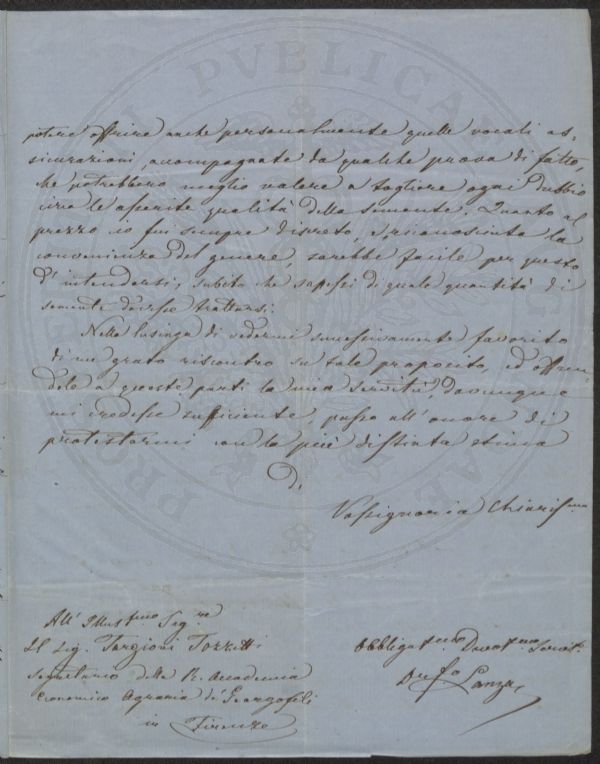 potere offrire anche personalmente quelle vocali as=
sicurazioni, accompagnate da qualche prova di fatto,
che potrebbero meglio valere a togliere ogni dubbio
circa le asserite qualità della semente. Quanto al
prezzo io fui sempre discreto, e riconosciuta la
convenienza del genere, sarebbe facile per questo
d'intendersi, subito che sapessi di quale quantità di
semente dovesse trattarsi.
Nella lusinga di vedermi successivamente favorito
di un grato riscontro su tale proposito, ed offren=
dole a queste parti la mia servitù, dovunque
mi credesse sufficiente, passo all'onore di
protestarmi con la più distinta stima
Di
Vossignoria Chiariss.ma
All' Illust.mo Sig.re
Il Sig. Targioni Tozzetti
Segretario della R. Accademia
Economico Agraria di Georgofili
in Firenze
Obbligat.mo Devot.mo Servit.
Lanza
PVBLICAE